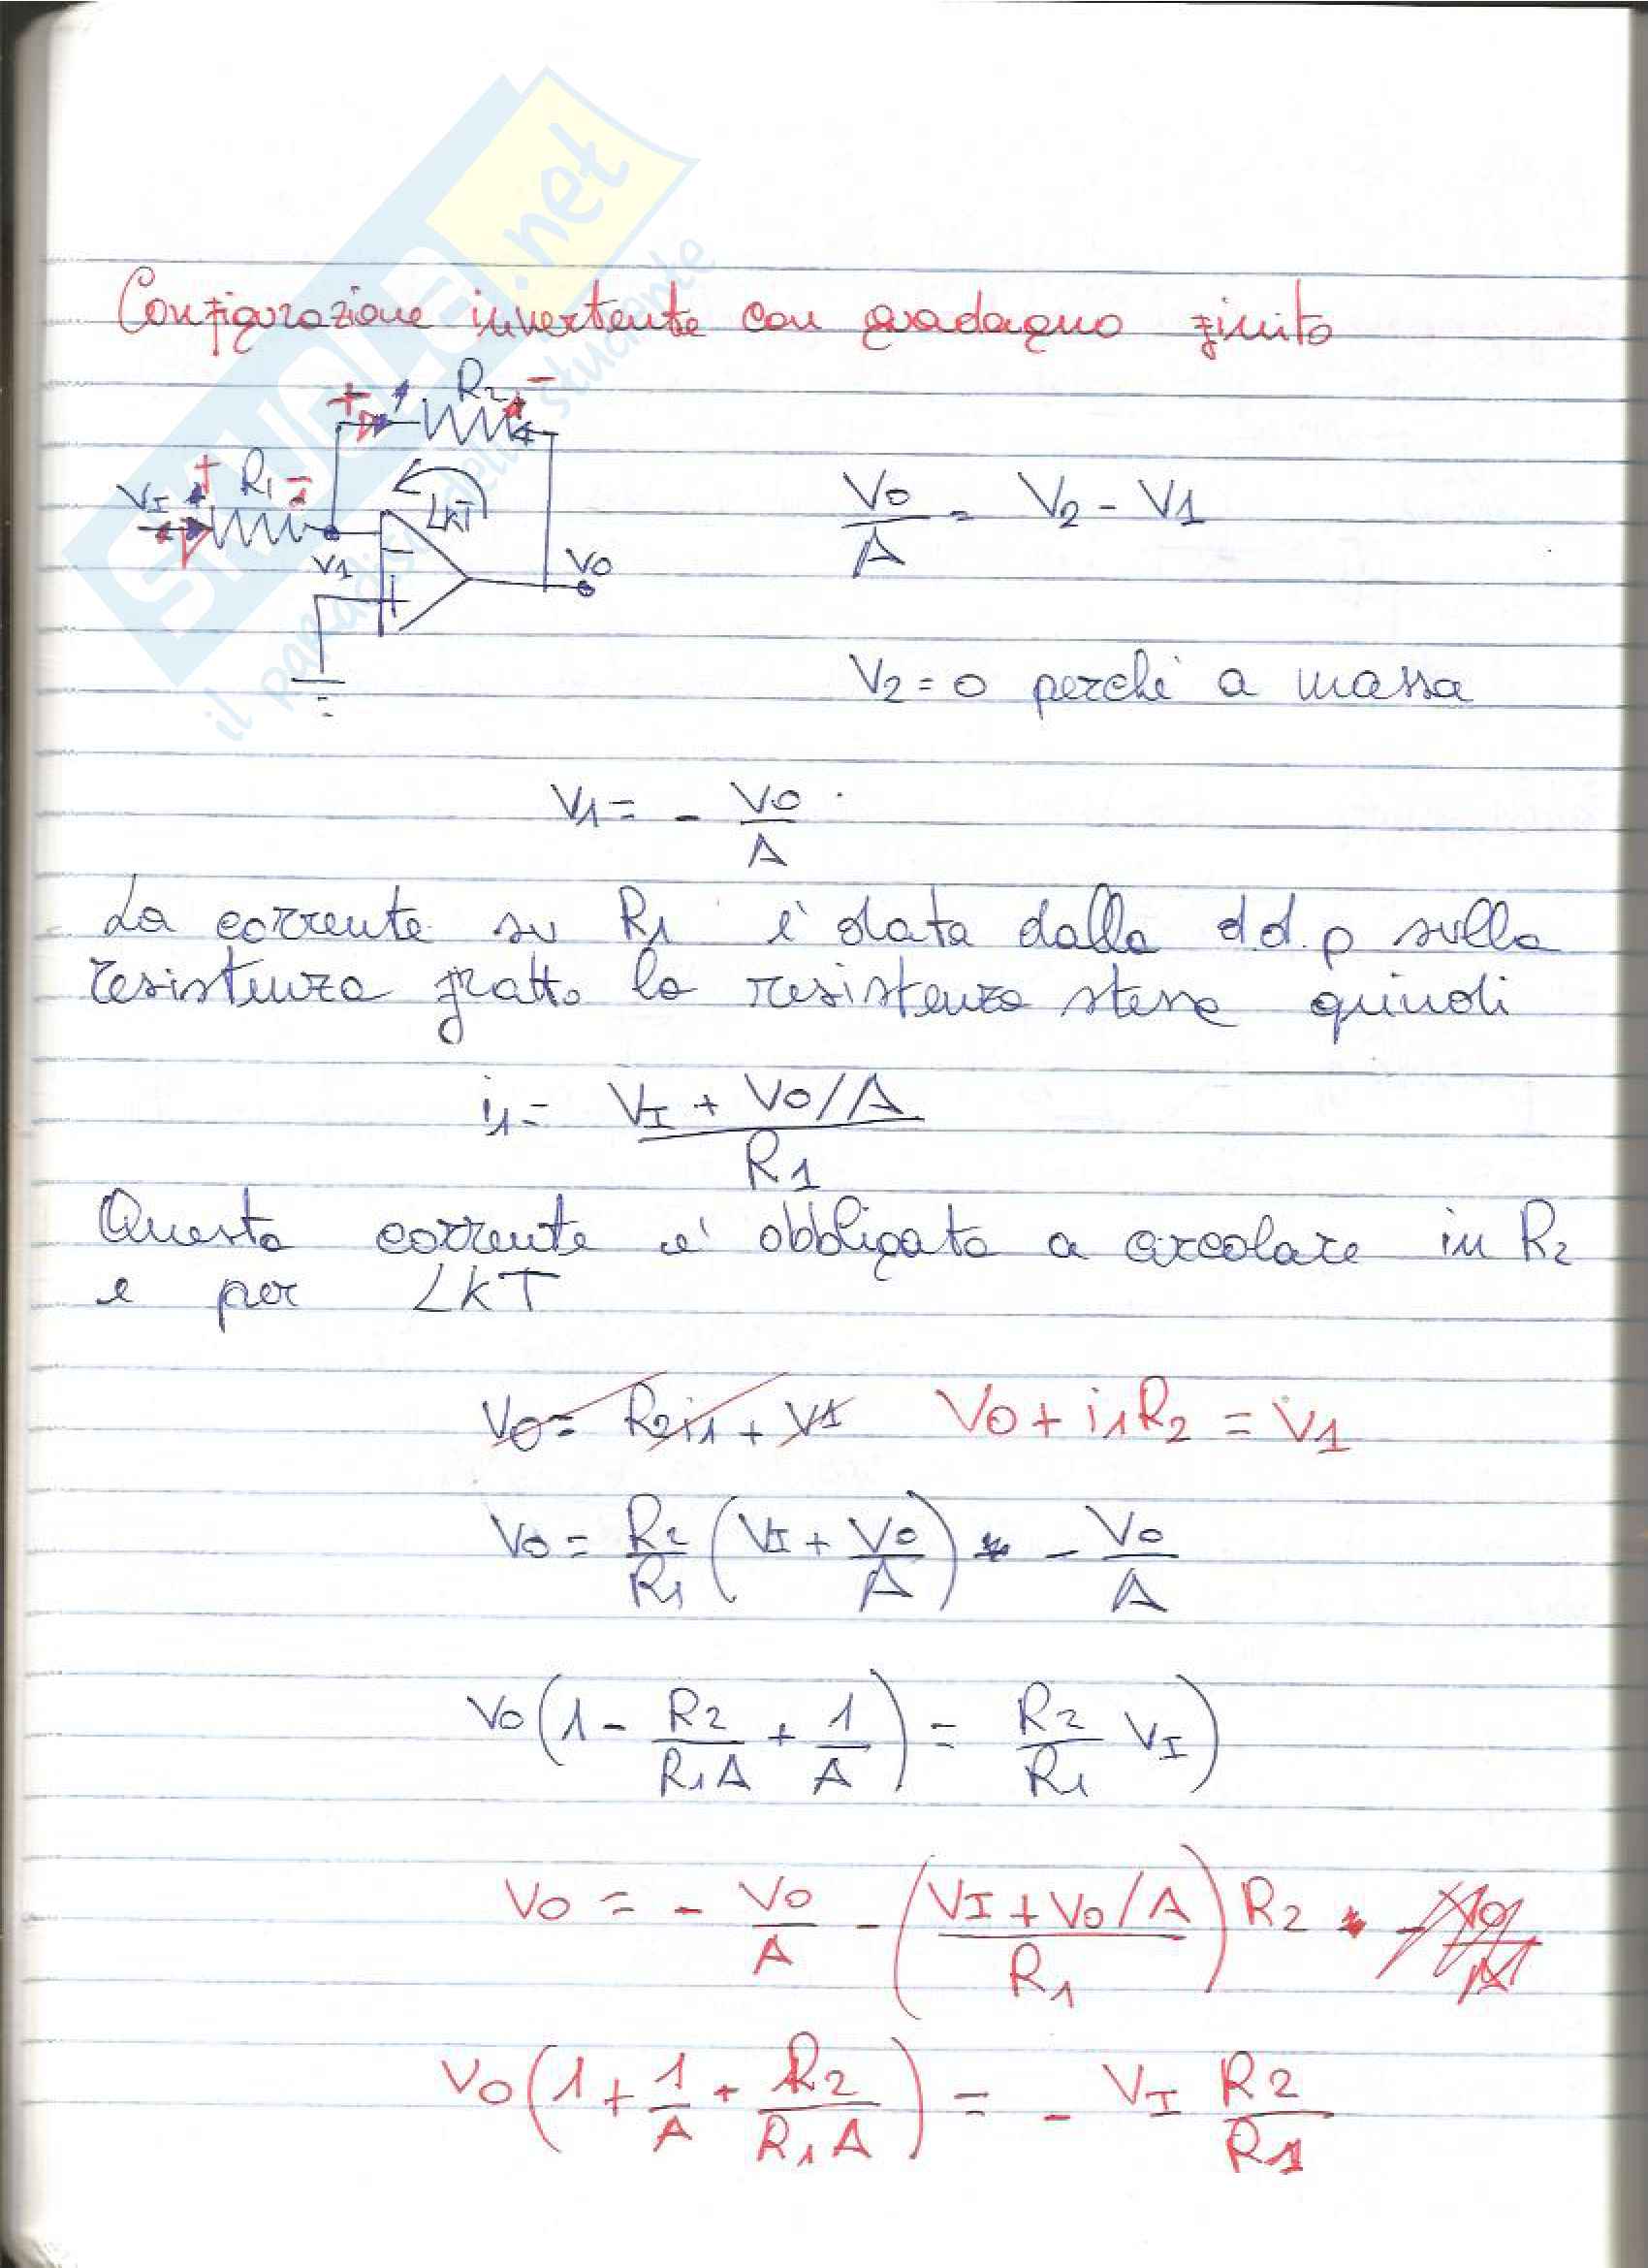 Configurazione invertente con guadagno finito
+ R2 -
VI + R1 -
LKT
V1
VO
VO/A = V2 - V1
V2 = 0 perchè a massa
V1 = - VO/A
La corrente su R1 è data dalla d.d.p sulla
resistenza fratto la resistenza stessa quindi
i1 = (VI + VO/A)/R1
Questa corrente e' obbligata a circolare in R2
e per LKT
VO = R2i1 + V1 VO + i1R2 = V1
VO = R2/R1 (VI + VO/A) - VO/A
VO (1 - R2/(R1A) + 1/A) = R2/R1 VI)
VO = - VO/A - ((VI + VO/A)/R1) R2 - VO/A
VO (1 + 1/A + R2/(R1A)) = - VI R2/R1
SKUOLA.net
il paradiso dello studente